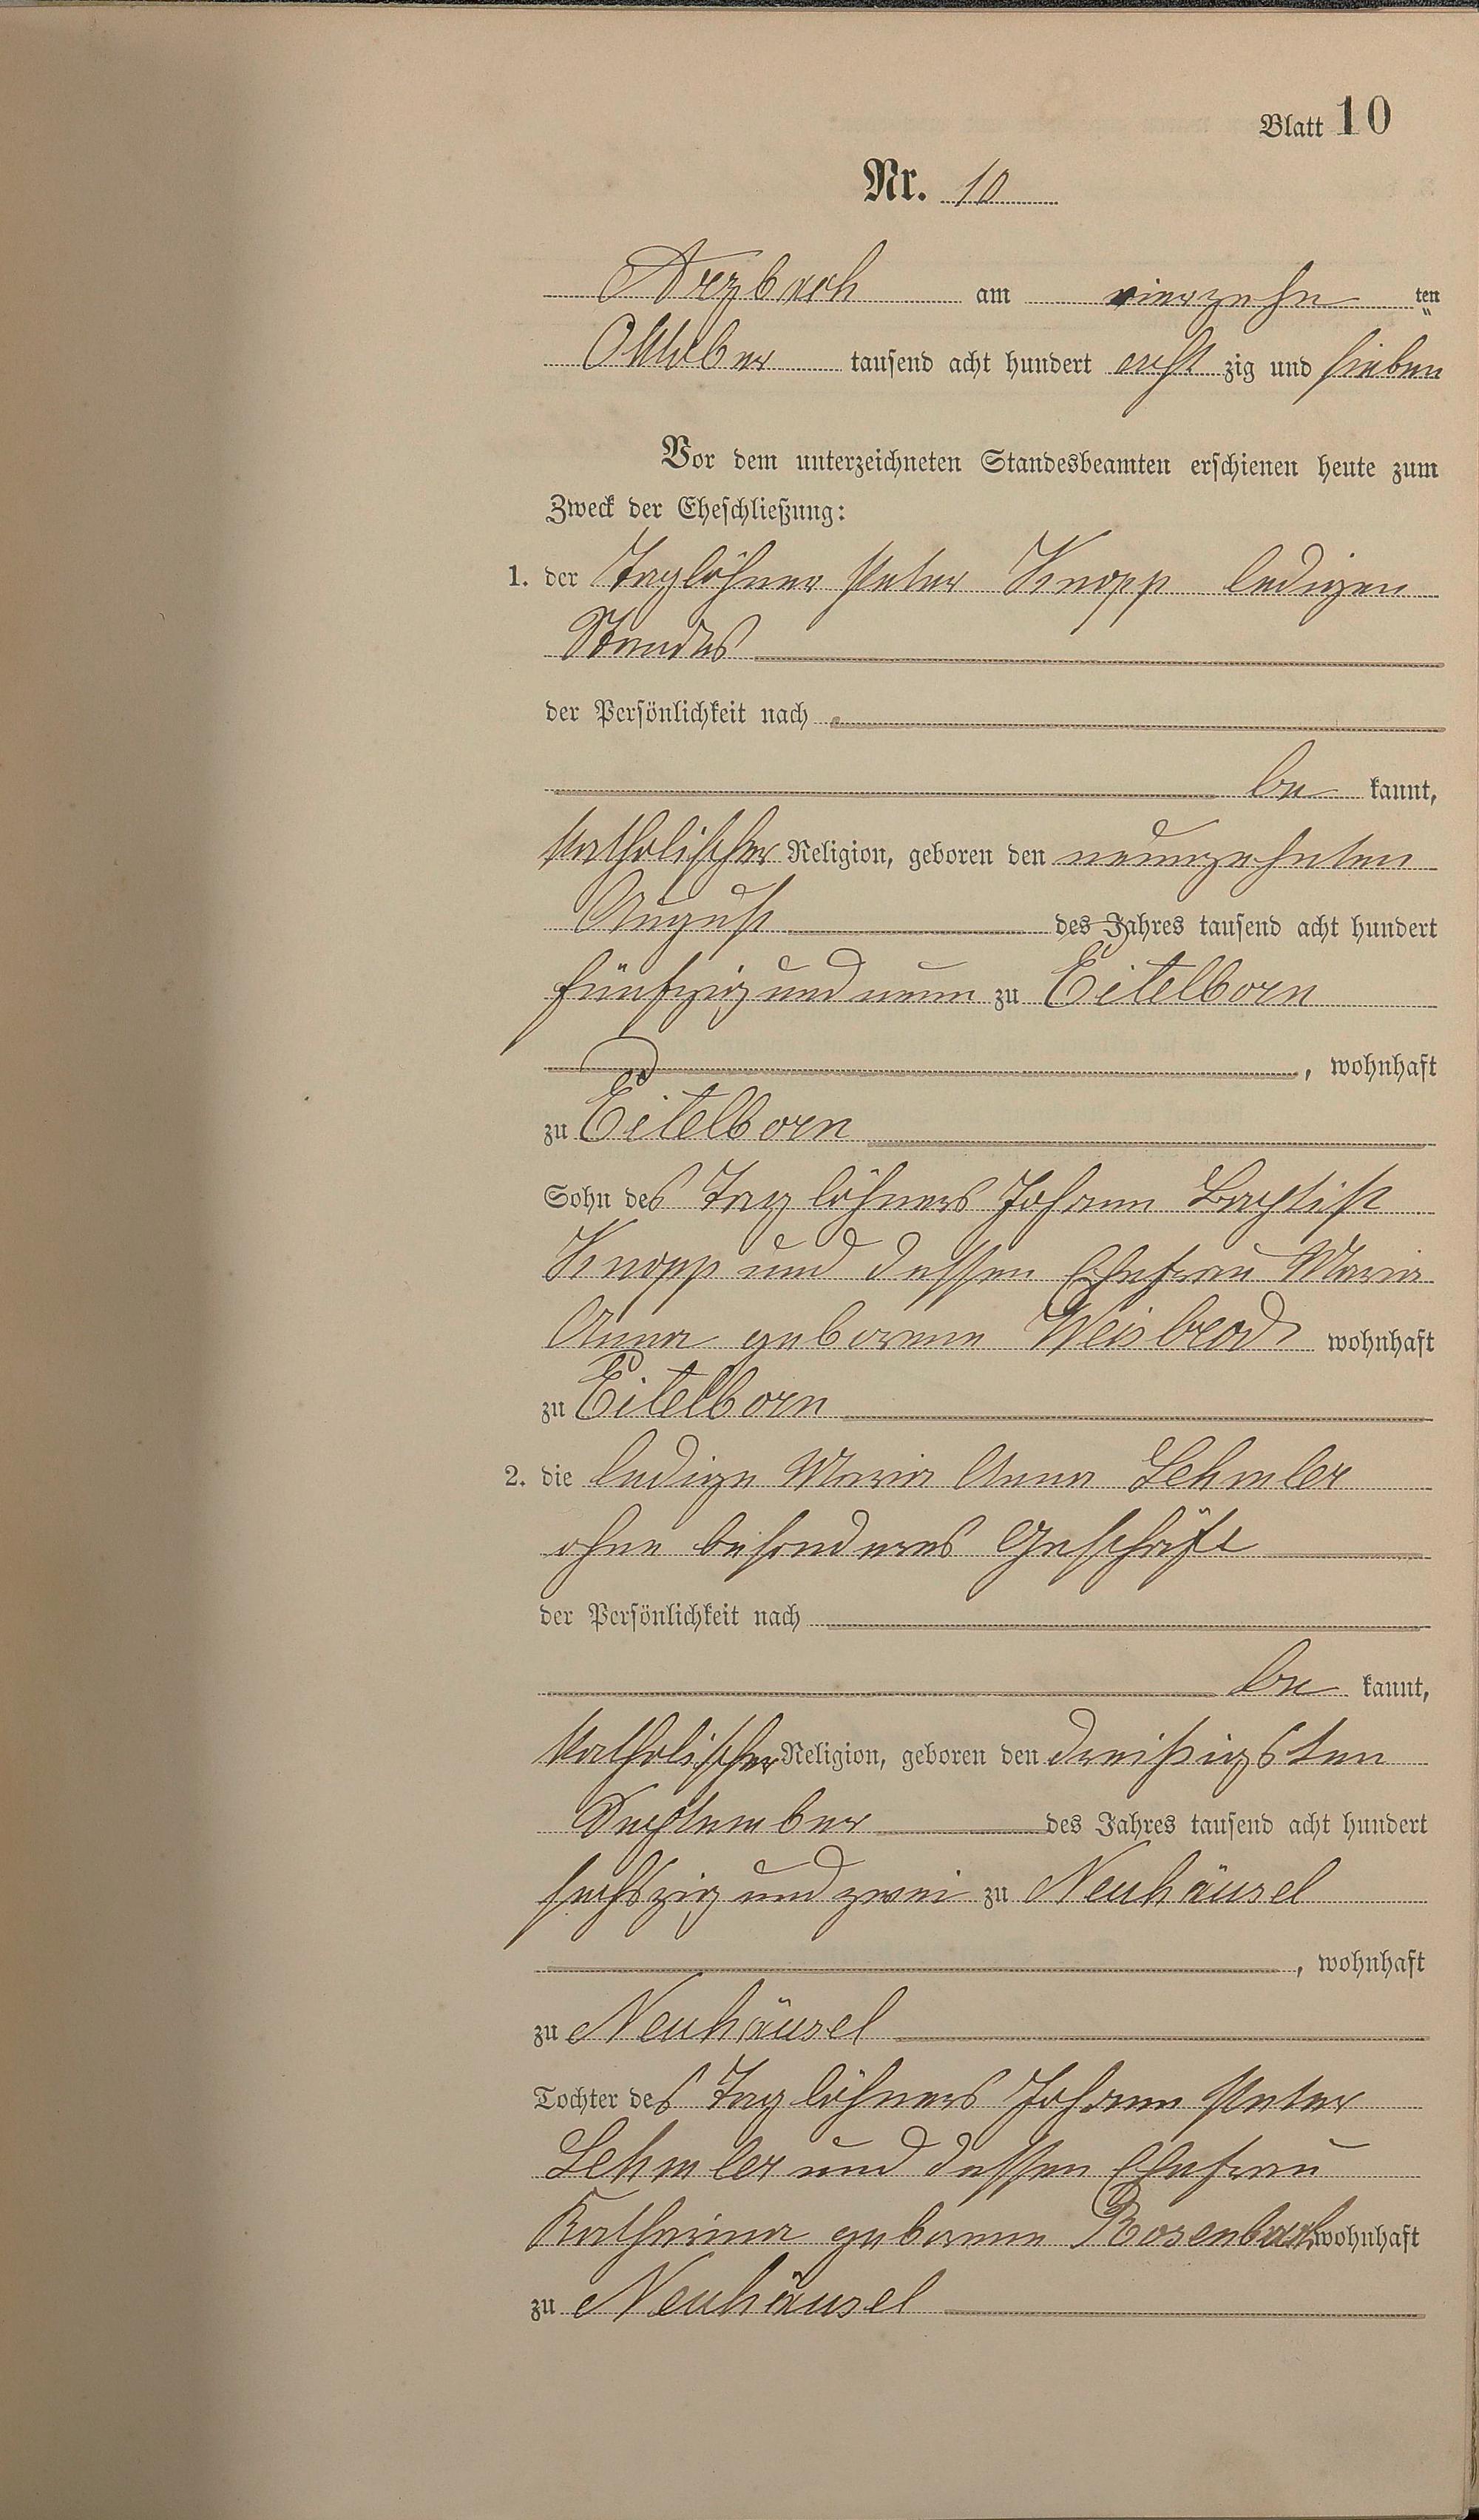 Blatt 10
Nr. 10
Arzbach am vierzehn ten
Oktober tausend acht hundert acht zig und sieben
Vor dem unterzeichneten Standesbeamten erschienen heute zum
Zweck der Eheschließung:
1. der Taglöhner Peter Knopp ledigen
Standes
der Persönlichkeit nach
be kannt,
katholischer Religion, geboren den neunzehnten
August des Jahres tausend acht hundert
fünfzig und neun zu Eitelborn
, wohnhaft
zu Eitelborn
Sohn des Taglöhners Johann Baptist
Knopp und dessen Ehefrau Maria
Anna geborene Weisbrod wohnhaft
zu Eitelborn
2. die ledige Maria Anna Lehmler
ohne besonderes Geschäft
der Persönlichkeit nach
be kannt,
katholischer Religion, geboren den dreißigsten
September des Jahres tausend acht hundert
sechszig und zwei zu Neuhäusel
, wohnhaft
zu Neuhäusel
Tochter des Taglöhners Johann Peter
Lehmler und dessen Ehefrau
Katharina geborene Rosenbach wohnhaft
zu Neuhäusel